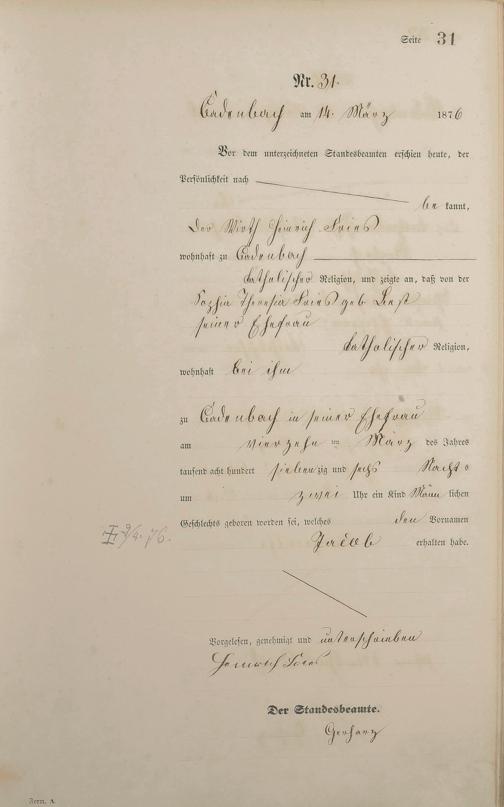 Seite 31
Nr. 31.
Cadenbach am 14. März 1876
Vor dem unterzeichneten Standesbeamten erschien heute, der
Persönlichkeit nach
be kannt,
der Wirth Heinrich Fries
wohnhaft zu Cadenbach
katholischer Religion, und zeigte an, daß von der
Sophia Theresia Fries geb
seiner Ehefrau
katholischer Religion,
wohnhaft bei ihm
zu Cadenbach in seiner Ehefrau
am vierzehn ten März des Jahres
tausend acht hundert sieben zig und sechs Nachts
um zwei Uhr ein Kind Männ lichen
Geschlechts geboren worden sei, welches den Vornamen
Jacob erhalten habe.
Vorgelesen, genehmigt und unterschrieben
Heinrich Fries
Der Standesbeamte.
Gerharz
Form. A.